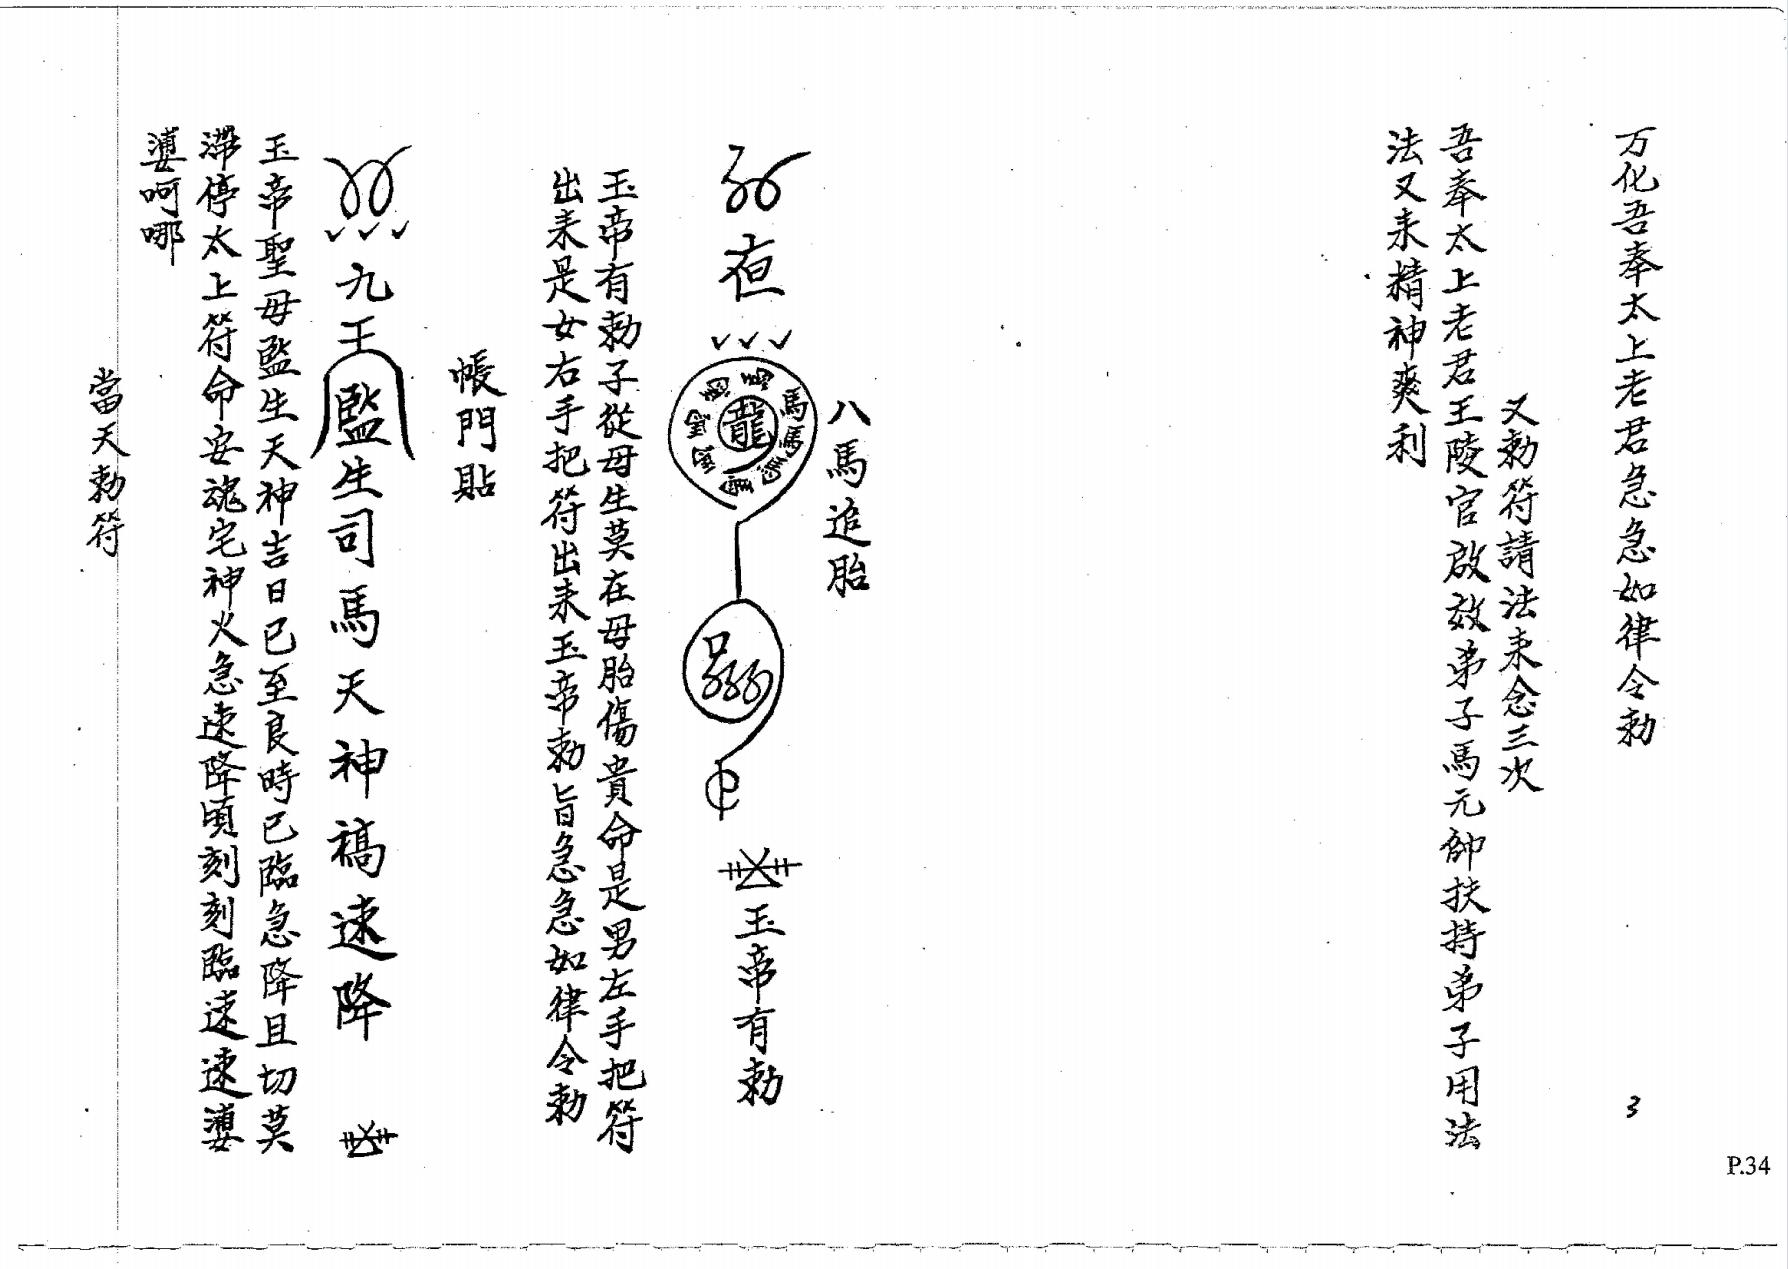 万化吾奉太上老君急急如律令勅
3
又勅符請法耒念三次
吾奉太上老君王陵官啟效弟子馬元帥扶持弟子用法
法又耒精神爽利
八馬追胎
龍
馬馬
玉帝有勅
玉帝有勅子從母生莫在母胎傷貴命是男左手把符
出耒是女右手把符出耒玉帝勅旨急急如律令勅
帳門貼
九王監生司馬天神禞速降
玉帝聖母監生天神吉日已至良時已臨急降且切莫
滯停太上符命安魂宅神火急速降頃刻刻臨速速
呵哪
當天勅符
P.34